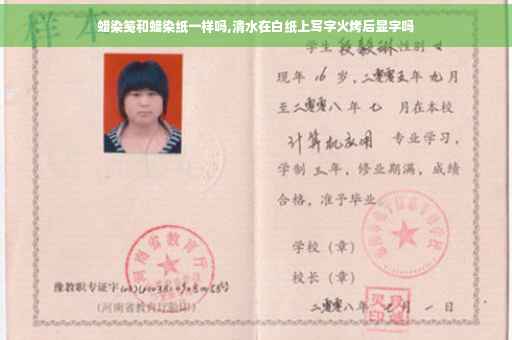 蜡染笺和蜡染纸一样吗,清水在白纸上写字火烤后显字吗
样本
学生 段毅琳 性别
现年 16 岁，二零零五年 九月
至二零零八年 七 月在本校
计算机应用 专业学习，
学制 三 年，修业期满，成绩
合格，准予毕业
学校（章）
校长（章）
河南省教育厅
豫教职专证字
(河南省教育厅验印)
二零零八年 七 月 一 日